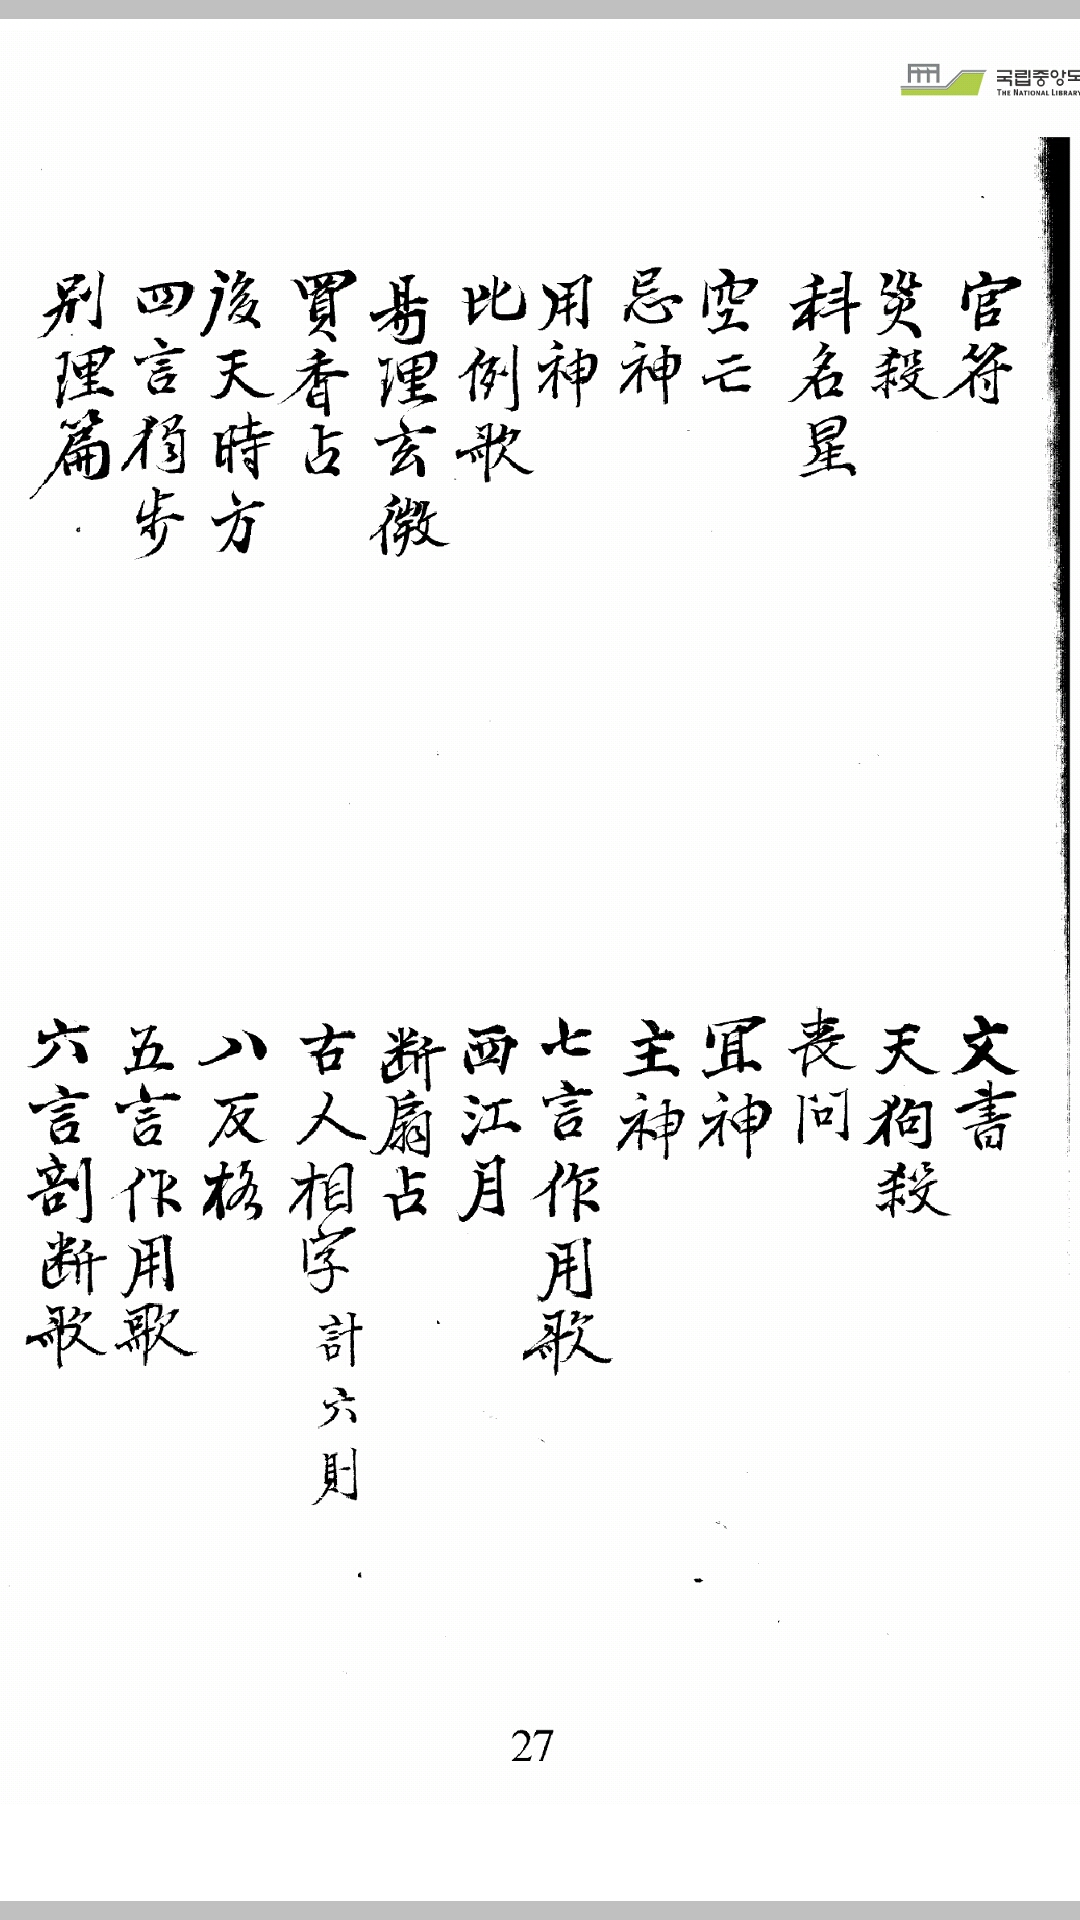 국립중앙도
THE NATIONAL LIBRARY
官符
災殺
科名星
空亡
忌神
用神
比例歌
易理玄微
買香占
後天時方
四言獨步
別理篇
文書
天狗殺
喪問
宜神
主神
七言作用歌
西江月
断扇占
古人相字 計六則
八反格
五言作用歌
六言剖断歌
27